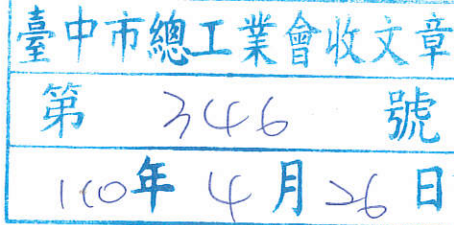 臺中市總工業會收文章
第 346 號
110年 4月26日